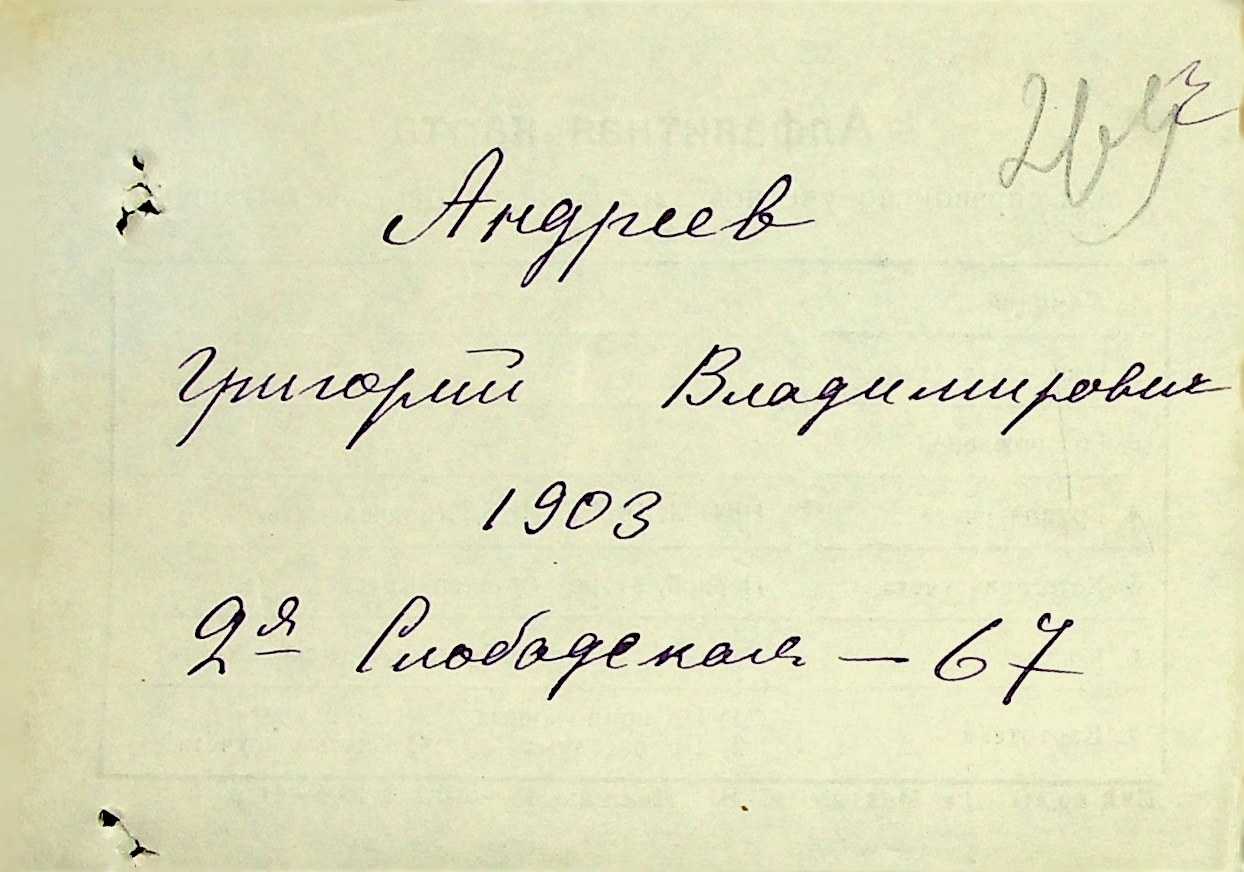 Андреев
Григорий Владимирович
1903
2я Слободская — 67